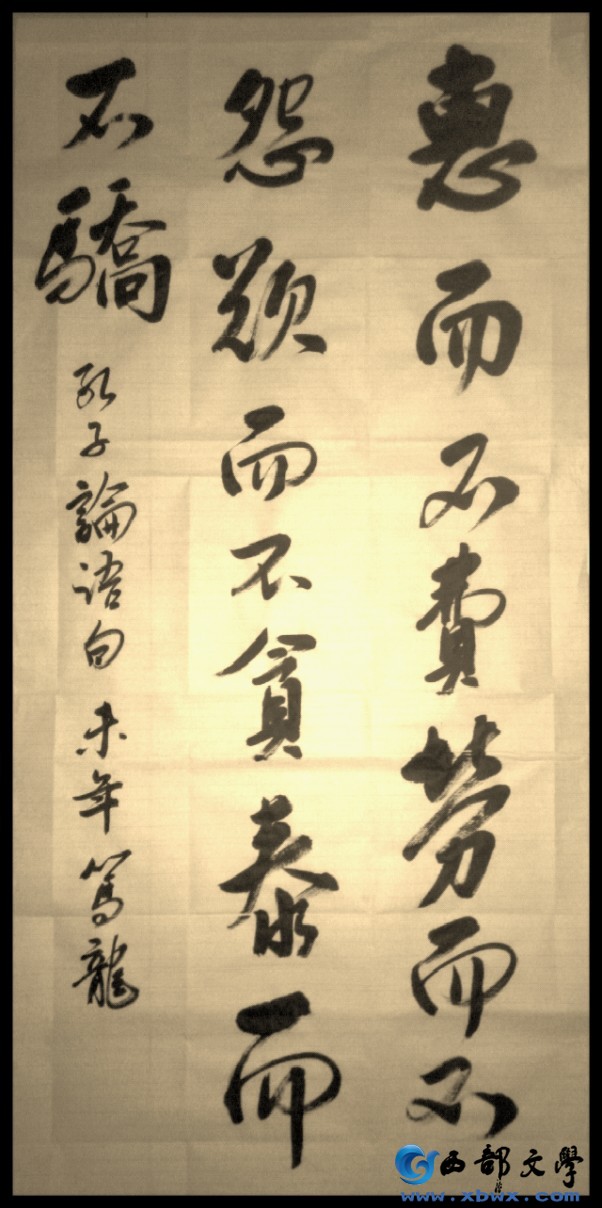 惠而不費勞而不
怨欲而不貪泰而
不驕
孔子論語句 未年 篤龍
西部文學
www.xbwx.com